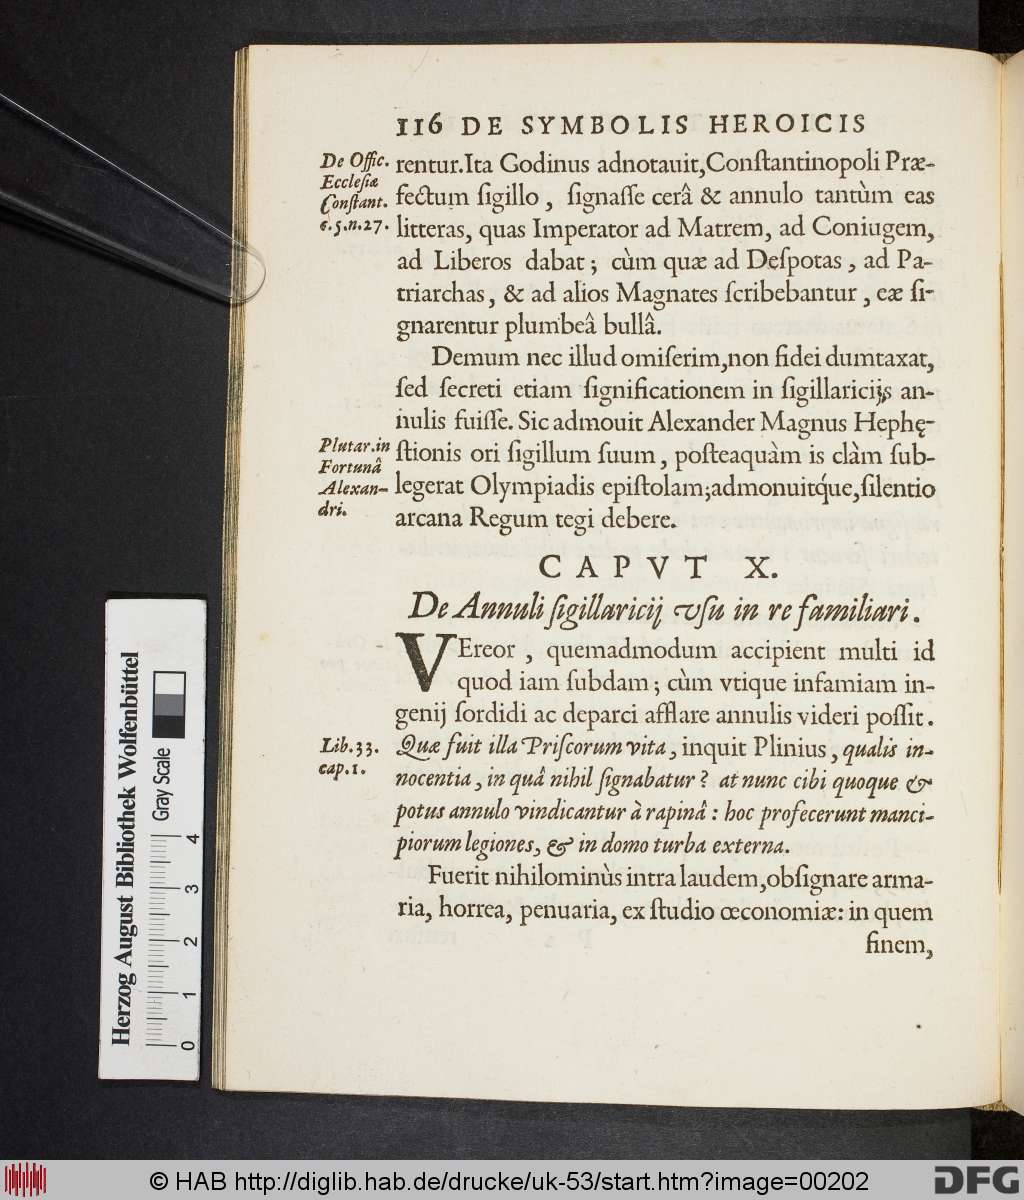 116 DE SYMBOLIS HEROICIS
De Offic.
Ecclesiæ
Constant.
c.5.n.27.
rentur.Ita Godinus adnotauit,Conſtantinopoli Præ-
fectum ſigillo, ſignaſſe cerâ & annulo tantùm eas
litteras, quas Imperator ad Matrem, ad Coniugem,
ad Liberos dabat; cùm quæ ad Deſpotas, ad Pa-
triarchas, & ad alios Magnates ſcribebantur, eæ ſi-
gnarentur plumbeâ bullâ.
Demum nec illud omiſerim,non fidei dumtaxat,
ſed ſecreti etiam ſignificationem in ſigillaricijs an-
nulis fuiſſe. Sic admouit Alexander Magnus Hephę-
Plutar.in
Fortunâ
Alexan-
dri.
ſtionis ori ſigillum ſuum, poſteaquàm is clàm ſub-
legerat Olympiadis epiſtolam;admonuitq́ue,ſilentio
arcana Regum tegi debere.
CAPVT X.
De Annuli ſigillaricij vſu in re familiari.
VEreor, quemadmodum accipient multi id
quod iam ſubdam; cùm vtique infamiam in-
genij ſordidi ac deparci afflare annulis videri poſſit.
Lib.33.
cap.1.
Quæ fuit illa Priſcorum vita, inquit Plinius, qualis in-
nocentia, in quâ nihil ſignabatur? at nunc cibi quoque &
potus annulo vindicantur à rapinâ: hoc profecerunt manci-
piorum legiones, & in domo turba externa.
Fuerit nihilominùs intra laudem,obſignare arma-
ria, horrea, penuaria, ex ſtudio œconomiæ: in quem
finem,
Herzog August Bibliothek Wolfenbüttel
Gray Scale
0 1 2 3 4
© HAB http://diglib.hab.de/drucke/uk-53/start.htm?image=00202
DFG